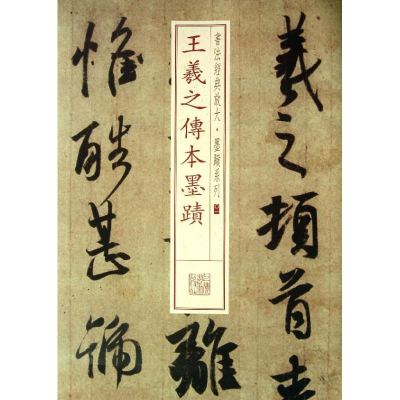 羲之頓首
書法經典放大·墨蹟系列
王羲之傳本墨蹟
離
惟酷甚號